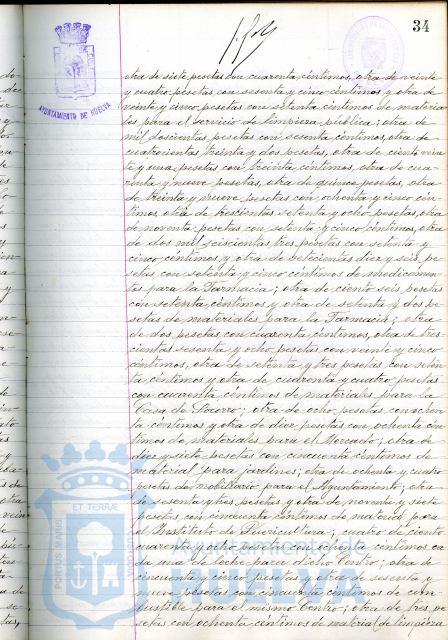 34
AYUNTAMIENTO DE HUELVA
otra de siete pesetas con cuarenta céntimos, otra de veinte
y cuatro pesetas con sesenta y cinco céntimos y otra de
veinte y cinco pesetas con setenta céntimos de materia-
les para el servicio de limpieza pública; otra de
mil doscientas pesetas con sesenta céntimos, otra de
cuatrocientas treinta y dos pesetas, otra de ciento vein-
te y una pesetas con treinta céntimos, otra de cua-
renta y nueve pesetas, otra de quince pesetas, otra
de treinta y nueve pesetas con ochenta y cinco cén-
timos, otra de trescientas setenta y ocho pesetas, otra
de noventa pesetas con setenta y cinco céntimos, otra
de dos mil seiscientas tres pesetas con setenta y
cinco céntimos y otra de setecientas diez y seis pe-
setas con setenta y cinco céntimos de medicamen-
tos para la Farmacia; otra de ciento seis pesetas
con setenta céntimos y otra de setenta y dos pe-
setas de materiales para la Farmacia; otra
de dos pesetas con cuarenta céntimos, otra de tres-
cientas sesenta y ocho pesetas con veinte y cinco
céntimos, otra de setenta y tres pesetas con seten-
ta céntimos y otra de cuarenta y cuatro pesetas
con cuarenta céntimos de materiales para la
Casa de Socorro; otra de ocho pesetas con ochen-
ta céntimos y otra de diez pesetas con ochenta cén-
timos de materiales para el Mercado; otra de
diez y siete pesetas con cincuenta céntimos de
material para jardines; otra de ochenta y cuatro
pesetas de mobiliario para el Ayuntamiento; otra
de sesenta y tres pesetas y otra de noventa y siete
pesetas con cincuenta céntimos de material para
el Instituto de Puericultura; cuatro de ciento
cuarenta y ocho pesetas con céntimos ca-
da una de leche para dicho Centro; otra de
cincuenta y cinco pesetas y otra de sesenta y
nueve pesetas con cincuenta céntimos de com-
bustible para el mismo Centro; otra de tres pe-
setas con ochenta céntimos de material de limpieza
PORTUS MARIS ET TERRAE
Ayuntamiento de
Huelva